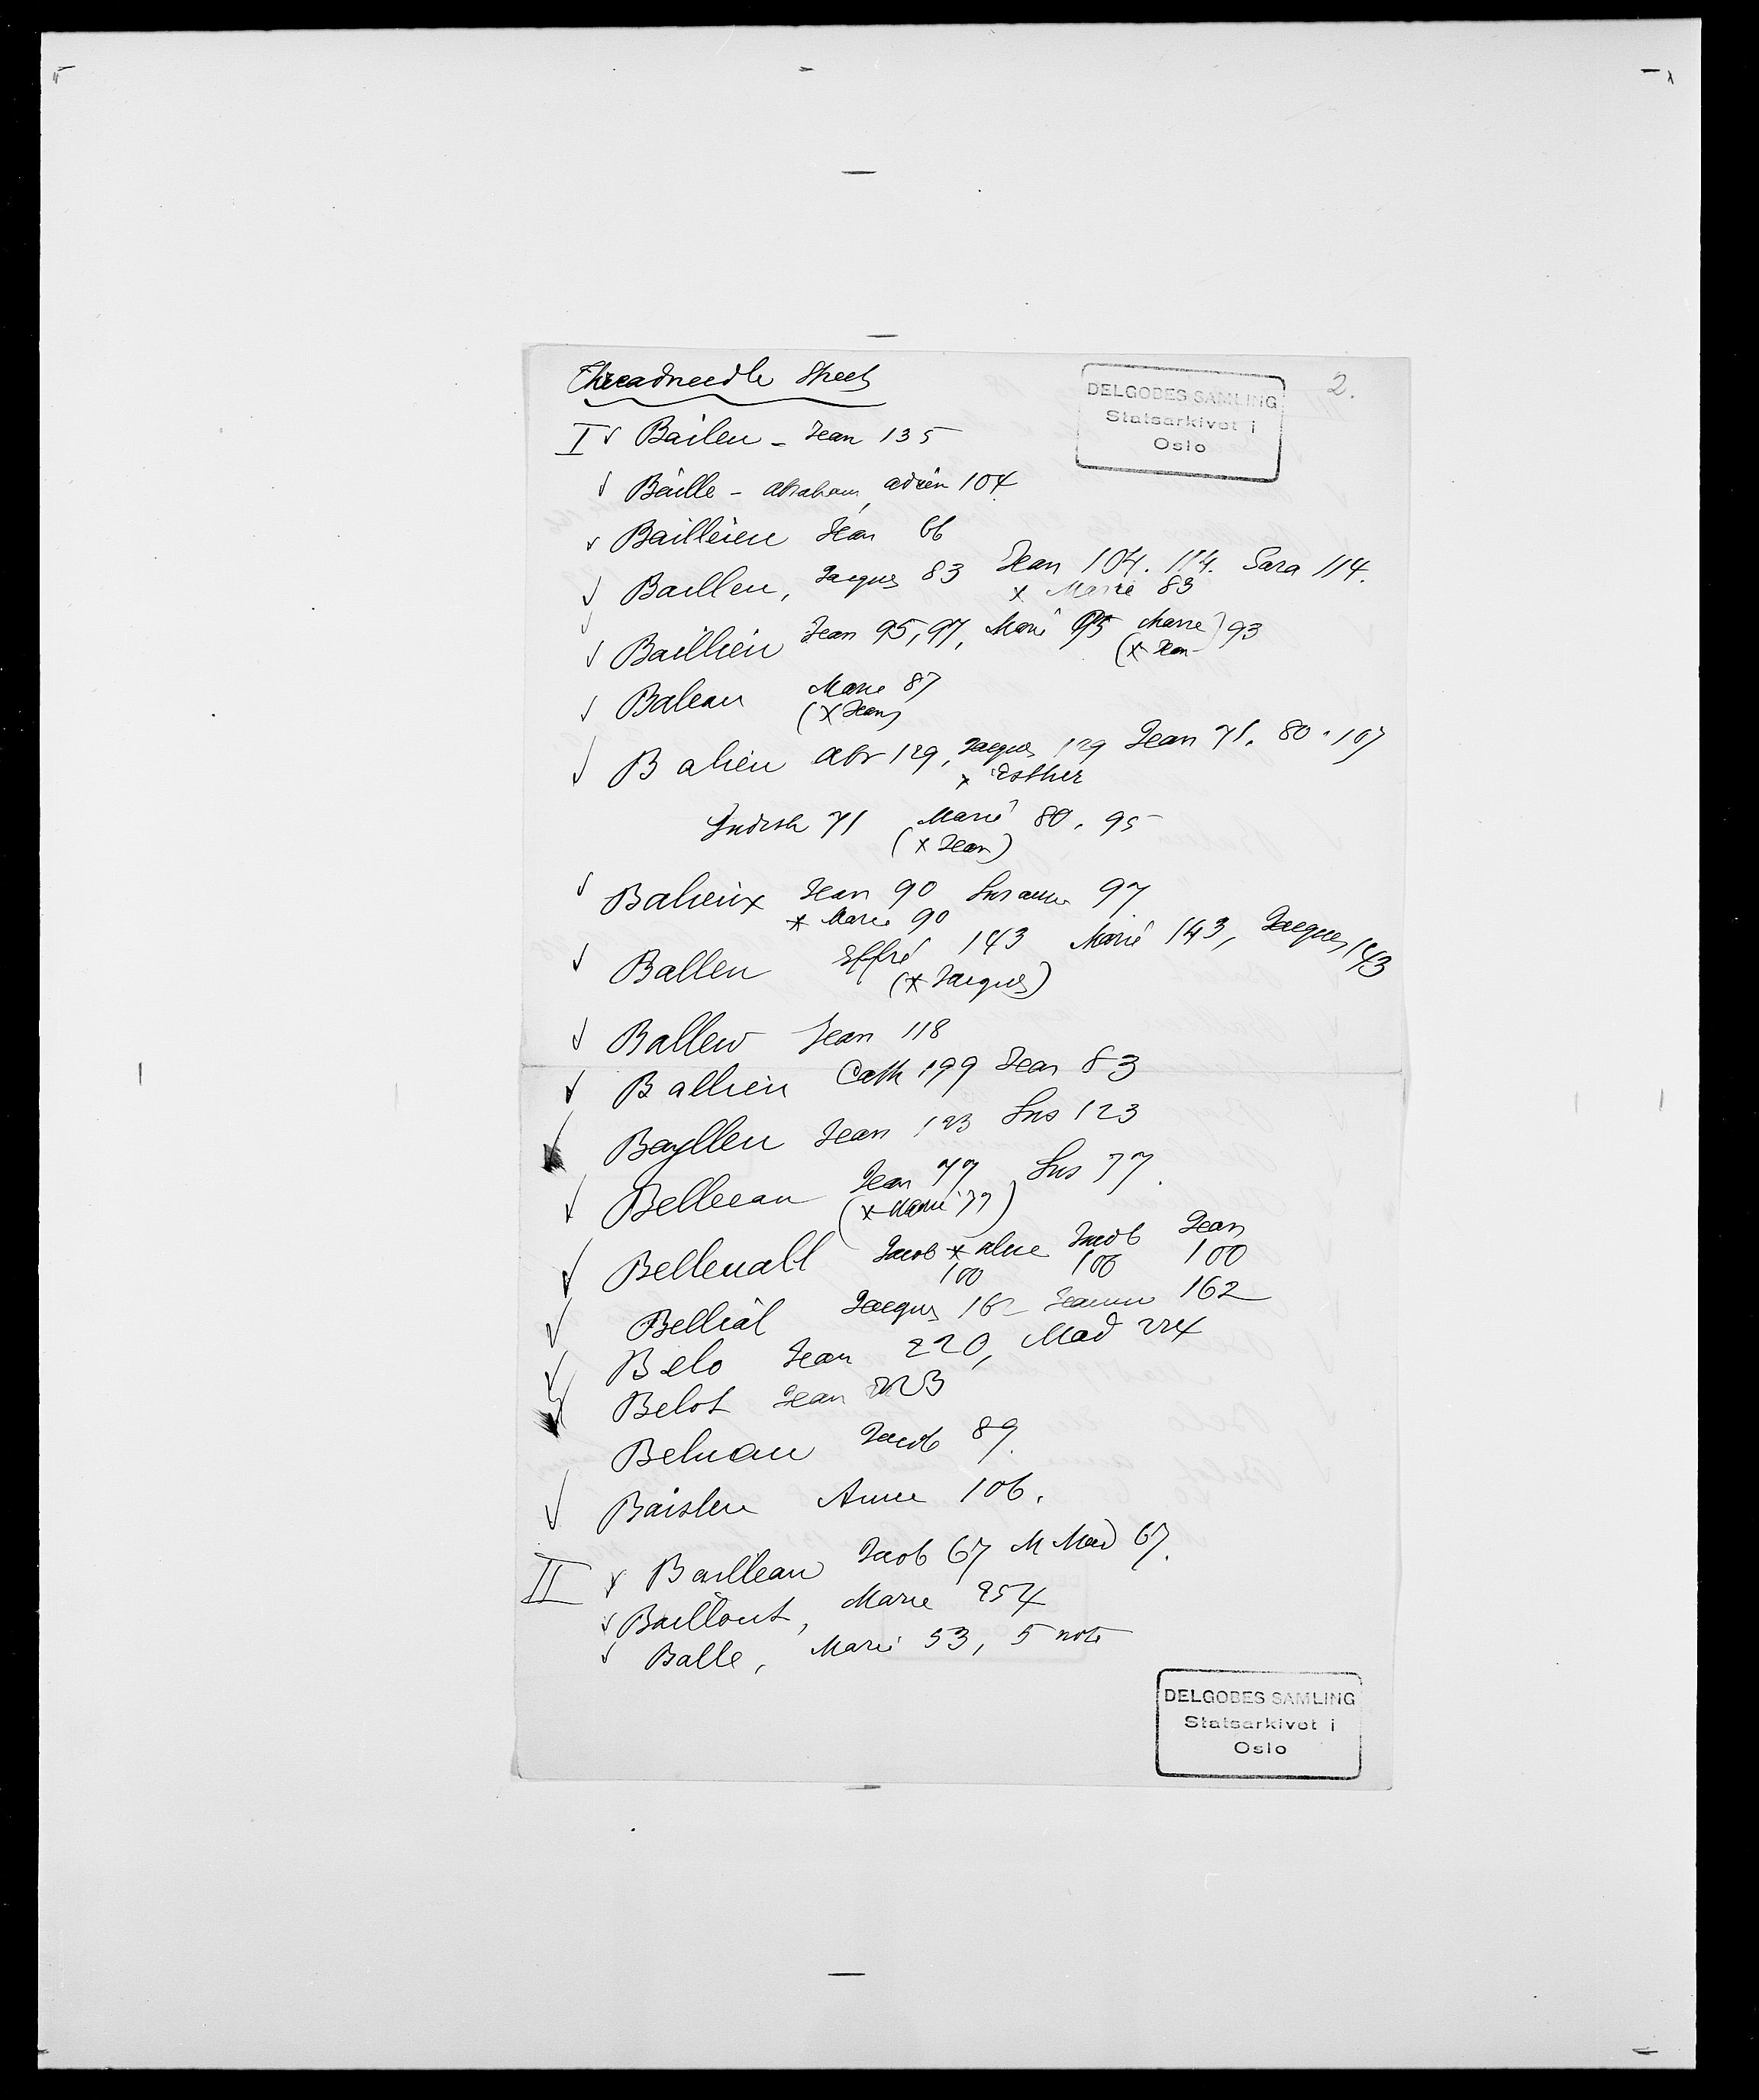 Threadneedle Street
DELGOBES SAMLING
Statsarkivet i
Oslo
2.
I √ Baileu - Jean 135
√ Baille - Abraham, Adrien 104
√ Baillieu Jean 66
√ Bailleu, Jaques 83 Jean 104. 114. Sara 114.
x Marie 83
√ Baillieu Jean 95, 97, Marie 95 Marie 93
(x Jean)
√ Baleau Marie 87
(x Jean)
√ Balieu Abr 129, Jaques 129 Jean 71. 80. 107
x Esther
Judith 71 Marie 80. 95
(x Jean)
√ Balieux Jean 90 Susanne 97
x Marie 90
√ Balleu 143 Marie 143, Jacques 143
(x Jaques)
√ Ballew Jean 118
√ Ballieu Cath 199 Jean 83
√ Baylleu Jean 123 Sus 123
√ Belleeau Jean 77 Sus 77.
(x Marie 77)
√ Bellenall Jacob x Jacob Jean
100 100 100
√ Bellial Jaques 162 Jeanne 162
√ Belo Jean 220, Mad 224
√ Belot Jean
Beluau Jacob 89.
√ Baisleu Anne 106.
II √ Bailleau Jacob 67 M Mad 67.
√ Baillout, Marie 254
√ Balle, Marie 53, 5 note
DELGOBES SAMLING
Statsarkivet i
Oslo